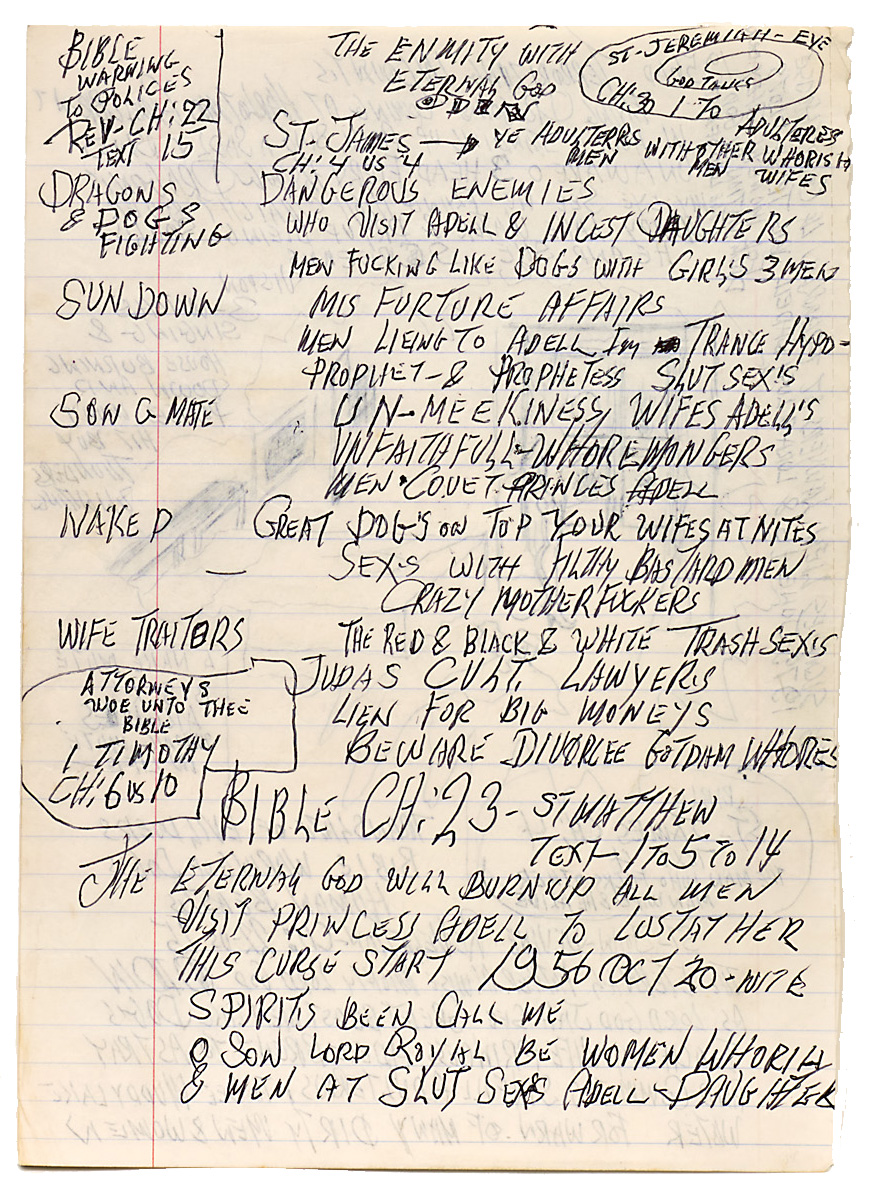 BIBLE
WARNING
TO POLICES
REV- CH: 22
TEXT 15
THE ENMITY WITH
ETERNAL GOD
ST-JEREMIAH - EYE
GOD TALKS
CH: 30 1 TO
ST- JAMES → YE ADULTERRS ADULTERES
CH: 4 us 4 MEN WITH OTHER WHORISH
MEN WIFES
DRAGONS DANGEROUS ENEMIES
& DOGS WHO VISIT ADELL & INCEST DAUGHTERS
FIGHTING
MEN FUCKING LIKE DOGS WITH GIRL'S 3 MEN
SUN DOWN MIS FURTURE AFFAIRS
MEN LIEING TO ADELL Im TRANCE HYPO-
PROPHET- & PROPHETESS SLUT SEX'S
SON G MATE UN-MEEKINESS, WIFES ADELL'S
UNFAITHFULL-WHOREMONGERS
MEN COVET PRINCES ADELL
NAKED GREAT DOG'S ON TOP YOUR WIFES AT NITES
— SEX'S WITH FILTHY BASTARD MEN
CRAZY MOTHERFUCKERS
WIFE TRAITORS THE RED & BLACK & WHITE TRASH SEX'S
JUDAS CULT. LAWYERS
LIEN FOR BIG MONEYS
BEWARE DIVORCEE GOTDAM WHORES
ATTORNEYS
WOE UNTO THEE
BIBLE
1 TIMOTHY
CH: 6 us 10
BIBLE CH: 23 - ST MATTHEW
TEXT- 1 TO 5 TO 14
THE ETERNAL GOD WILL BURN UP ALL MEN
VISIT PRINCESS ADELL TO LUST AT HER
THIS CURSE START 1956 OCT 20 - NITE
SPIRITS BEEN CALL ME
O SON LORD ROYAL BE WOMEN WHORISH
& MEN AT SLUT SEX'S ADELL - DAUGHTER